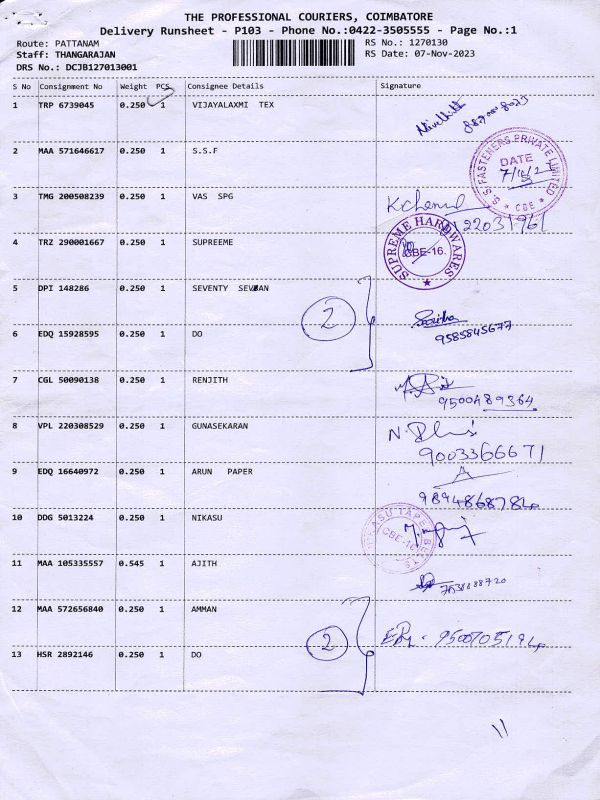 THE PROFESSIONAL COURIERS, COIMBATORE
Delivery Runsheet - P103 - Phone No.:0422-3505555 - Page No.:1
Route: PATTANAM RS No.: 1270130
Staff: THANGARAJAN RS Date: 07-Nov-2023
DRS No.: DCJB127013001
S No Consignment No Weight PCS Consignee Details Signature
1 TRP 6739045 0.250 1 VIJAYALAXMI TEX
2 MAA 571646617 0.250 1 S.S.F
S.S FASTENERS PRIVATE LIMITED
DATE
* CBE *
3 TMG 200508239 0.250 1 VAS SPG
22031961
4 TRZ 290001667 0.250 1 SUPREEME
SUPREME HARDWARES
CBE-16.
5 DPI 148286 0.250 1 SEVENTY SEVEAN
2
9585845677
6 EDQ 15928595 0.250 1 DO
7 CGL 50090138 0.250 1 RENJITH
9500489364
8 VPL 220308529 0.250 1 GUNASEKARAN
9003366671
9 EDQ 16640972 0.250 1 ARUN PAPER
9894868784
10 DDG 5013224 0.250 1 NIKASU
CBE-16
11 MAA 105335557 0.545 1 AJITH
12 MAA 572656840 0.250 1 AMMAN
2
9500705194
13 HSR 2892146 0.250 1 DO
11